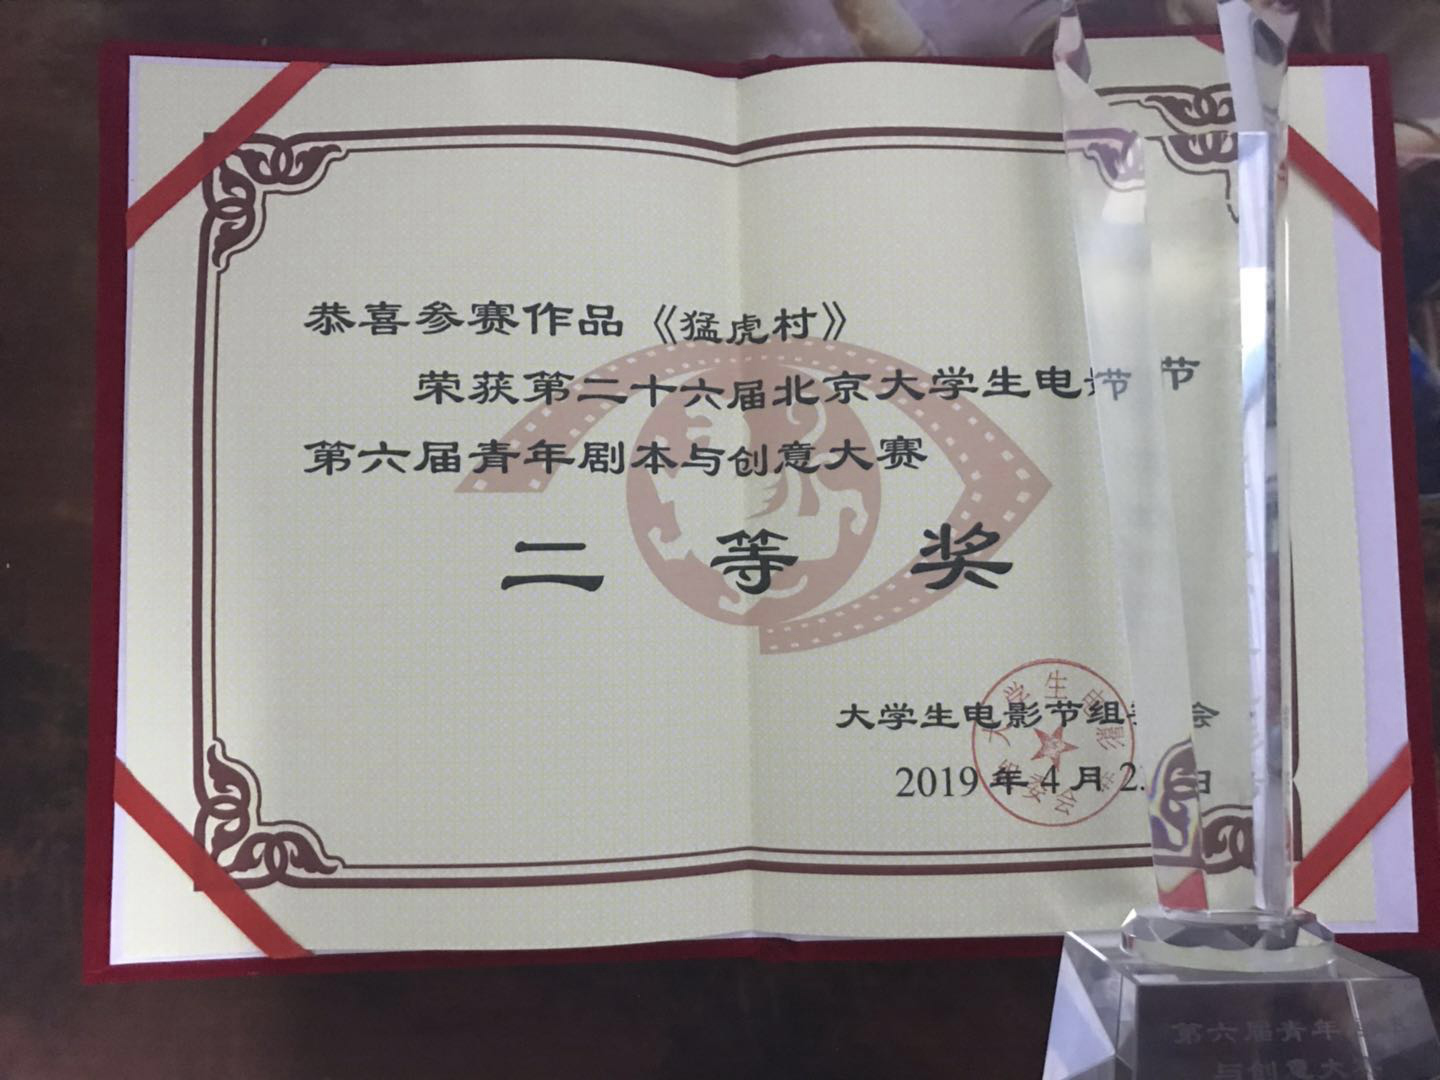 恭喜参赛作品《猛虎村》
荣获第二十六届北京大学生电影节
第六届青年剧本与创意大赛
二等奖
大学生电影节组委会
2019年4月2 日
大学生电影节
组委会
第六届青年
与创意大赛